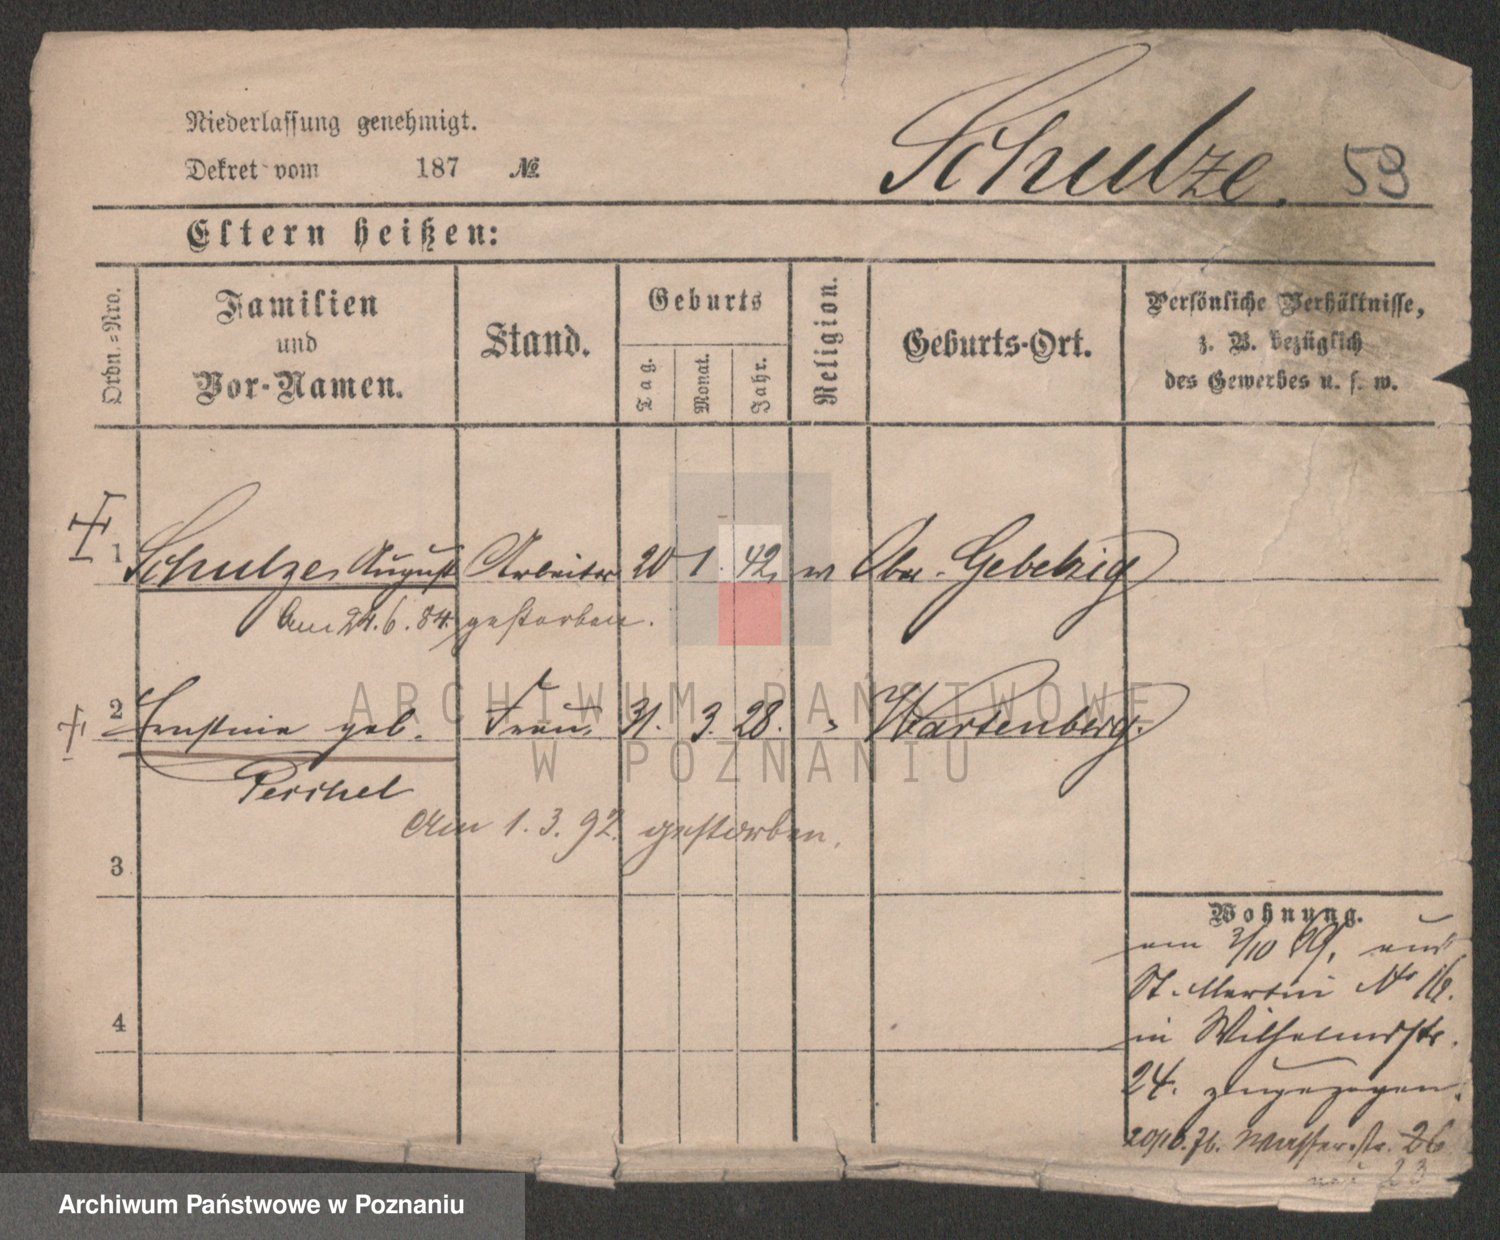 Niederlassung genehmigt.
Dekret vom 187 №
Schulze. 53
Eltern heißen:
Ordn.=Nro.
Familien
und
Vor-Namen.
Stand.
Geburts
Tag.
Monat.
Jahr.
Religion.
Geburts-Ort.
Persönliche Verhältnisse,
z. B. bezüglich
des Gewerbes u. s. w.
1 Schulze, August Arbeiter 20 1. 42. Ober-
Am 24.6.84 gestorben.
2 Ernstine geb. Frau 31. 3. 28. Wartenberg.
Perschel
Am 1.3.92. gestorben.
3
4
Wohnung.
am aus
St. Martin Nr 16.
in Wilhelmsstr.
24. zugezogen.
Wasserstr. 26
23
ARCHIWUM PAŃSTWOWE
W POZNANIU
Archiwum Państwowe w Poznaniu